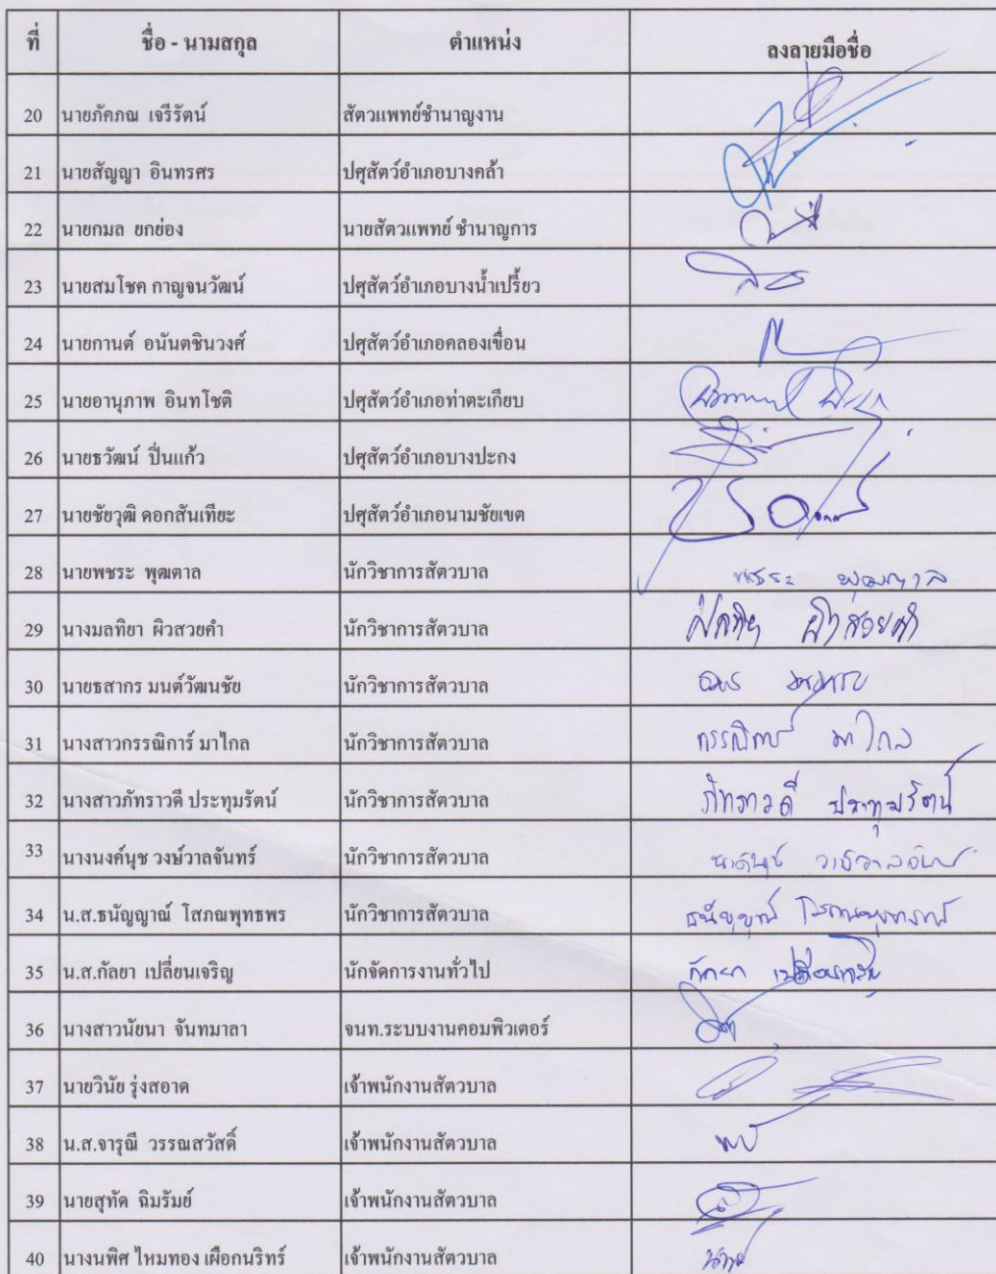 ที่ ชื่อ - นามสกุล ตำแหน่ง ลงลายมือชื่อ
20 นายภัคภณ เจรีรัตน์ สัตวแพทย์ชำนาญงาน
21 นายสัญญา อินทรศร ปศุสัตว์อำเภอบางคล้า
22 นายกมล ยกย่อง นายสัตวแพทย์ ชำนาญการ
23 นายสมโชค กาญจนวัฒน์ ปศุสัตว์อำเภอบางน้ำเปรี้ยว
24 นายกานต์ อนันตชินวงศ์ ปศุสัตว์อำเภอคลองเขื่อน
25 นายอานุภาพ อินทโชติ ปศุสัตว์อำเภอท่าตะเกียบ
26 นายธวัฒน์ ปิ่นแก้ว ปศุสัตว์อำเภอบางปะกง
27 นายชัยวุฒิ ดอกสันเทียะ ปศุสัตว์อำเภอนามชัยเขต
28 นายพชระ พุฒตาล นักวิชาการสัตวบาล พชระ พุฒตาล
29 นางมลทิยา ผิวสวยคำ นักวิชาการสัตวบาล
30 นายธสากร มนต์วัฒนชัย นักวิชาการสัตวบาล
31 นางสาวกรรณิการ์ มาไกล นักวิชาการสัตวบาล กรรณิการ์ มาไกล
32 นางสาวภัทราวดี ประทุมรัตน์ นักวิชาการสัตวบาล ภัทราวดี ประทุมรัตน์
33 นางนงค์นุช วงษ์วาลจันทร์ นักวิชาการสัตวบาล
34 น.ส.ธนัญญาณ์ โสภณพุทธพร นักวิชาการสัตวบาล
35 น.ส.กัลยา เปลี่ยนเจริญ นักจัดการงานทั่วไป
36 นางสาวนัยนา จันทมาลา จนท.ระบบงานคอมพิวเตอร์
37 นายวินัย รุ่งสอาด เจ้าพนักงานสัตวบาล
38 น.ส.จารุณี วรรณสวัสดิ์ เจ้าพนักงานสัตวบาล
39 นายสุทัด ฉิมรัมย์ เจ้าพนักงานสัตวบาล
40 นางนพิศ ไหมทอง เผือกนริทร์ เจ้าพนักงานสัตวบาล